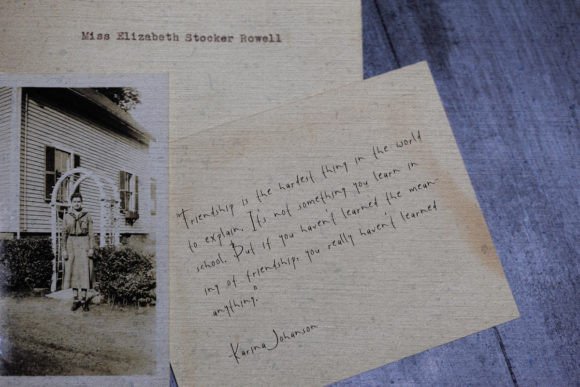 Miss Elizabeth Stocker Rowell
"Friendship is the hardest thing in the world
to explain. It's not something you learn in
school. But if you haven't learned the mean-
ing of friendship, you really haven't learned
anything."
Karina Johanson